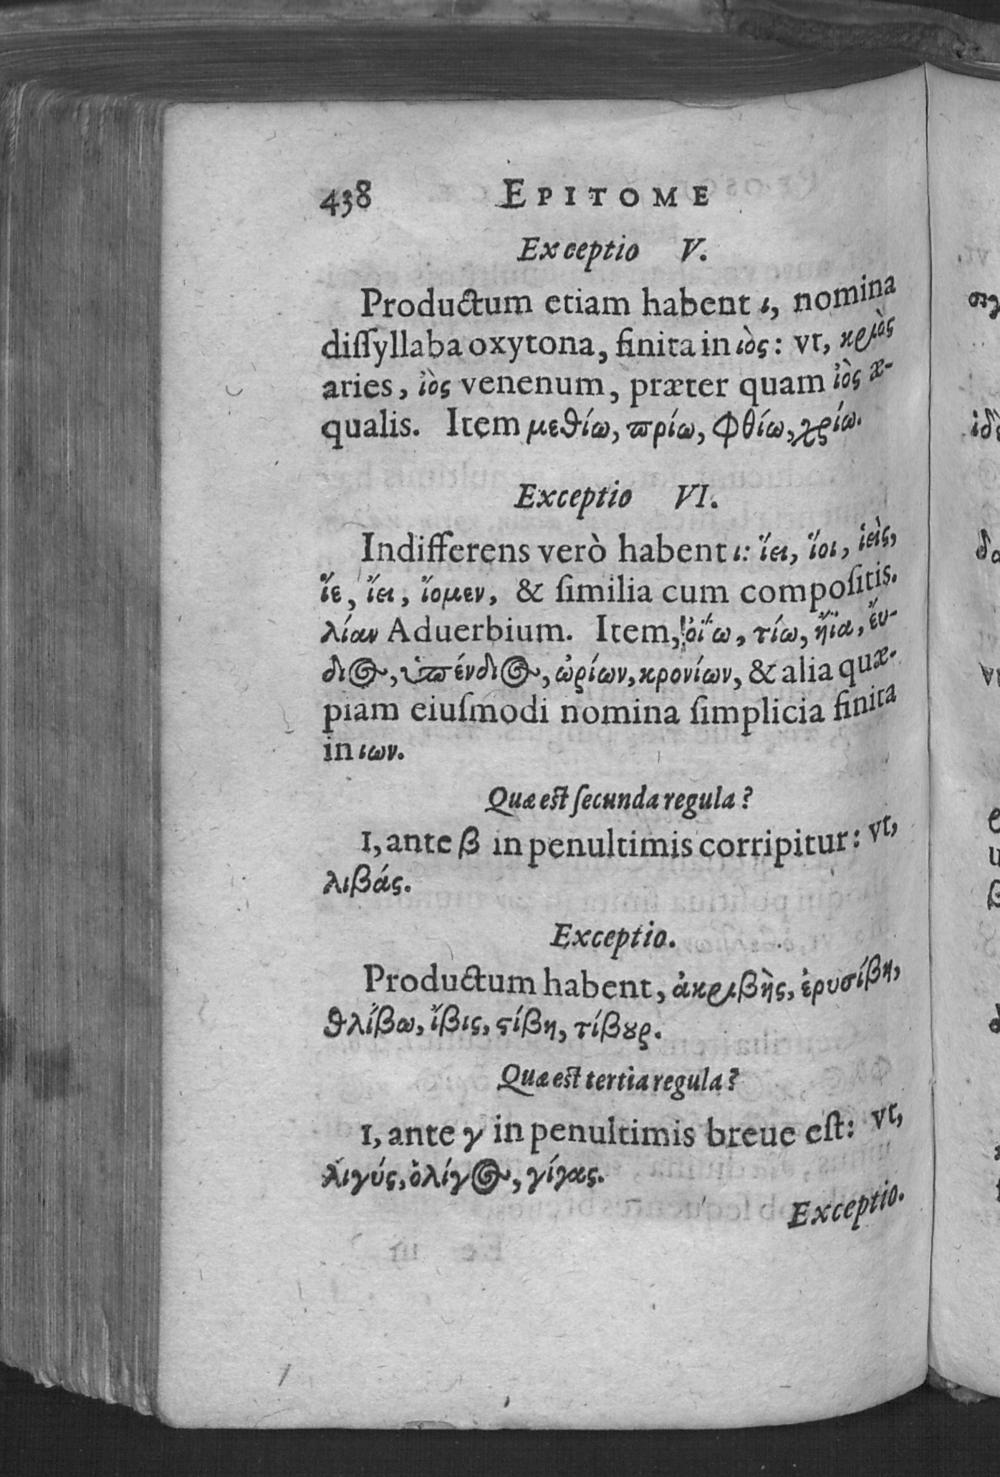 438 EPITOME
Exceptio V.
Productum etiam habent ι, nomina
dissyllaba oxytona, finita in ιὸς: vt, κριὸς
aries, ἰὸς venenum, præter quam ἰὸς æ-
qualis. Item μεθίω, πρίω, φθίω, χρίω.
Exceptio VI.
Indifferens verò habent ι: ἵει, ἵοι, ἱεὶς,
ἵε, ἴει, ἴομεν, & similia cum compositis.
λίαν Aduerbium. Item, ὀΐω, τίω, ἤϊα, ἔν-
διος, ὑπένδιος, ὠρίων, κρονίων, & alia quæ-
piam eiusmodi nomina simplicia finita
in ιων.
Quæ est secunda regula?
I, ante β in penultimis corripitur: vt,
λιβάς.
Exceptio.
Productum habent, ἀκριβὴς, ἐρυσίβη,
θλίβω, ἴβις, στίβη, τίβουρ.
Quæ est tertia regula?
I, ante γ in penultimis breue est: vt,
λιγύς, ὀλίγος, γίγας.
Exceptio.